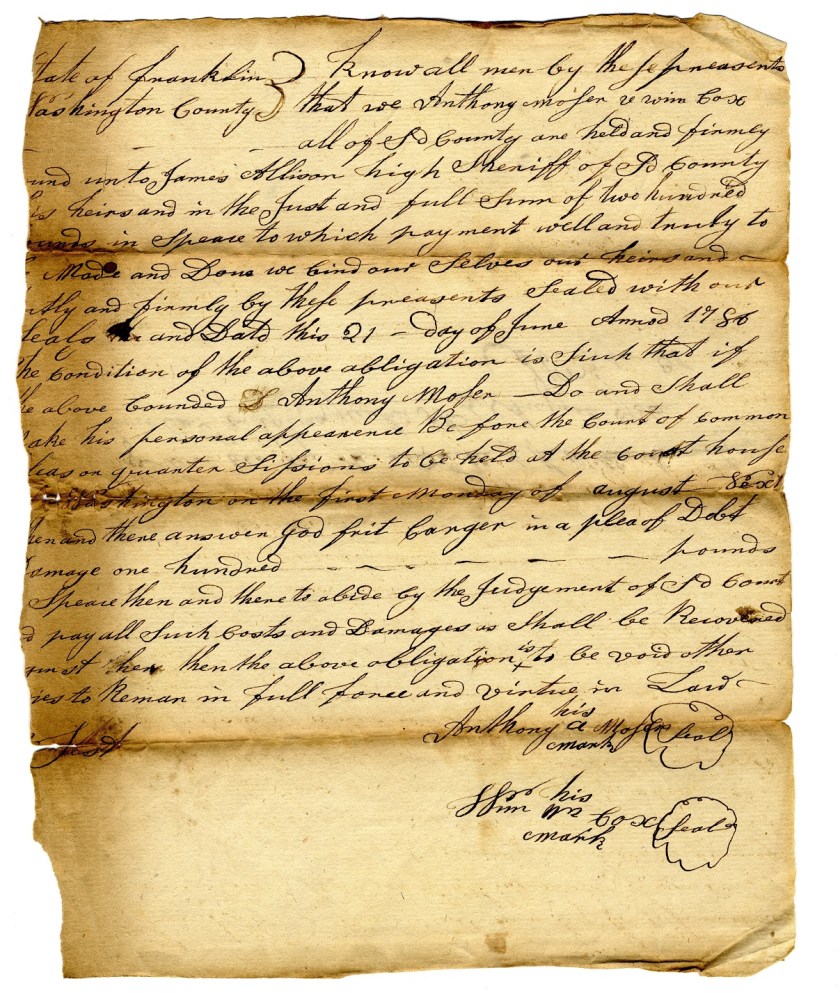 tate of franklin } Know all men by these preasents
Washington County } that we Anthony Moser & wim Cox
all of Sd County are held and firmley
ound unto James Allison high Sheriff of Sd County
is heirs and in the Just and full Sum of two hundred
ounds in Speace to which payment well and truly to
Made and Done we bind our Selves our heirs and
ntly and firmly by these preasents Sealed with our
Seals and Datd this 21 – day of June Annod 1786
The Condition of the above obligation is Such that if
he above bounded Anthony Moser – Do and Shall
ake his personal appearence Before the Court of Common
leas or quarter Sissions to be held at the Court house
Washington on the first Monday of august Next
hen and there answer God frit Carger in a plea of Debt
Damage one hundred – – – – – – pounds
Speace then and there to abide by the Judgement of Sd Court
d pay all Such Costs and Damages as Shall be Recovered
ainst then the above obligation is to be void other
ies to Reman in full force and virtue in Law –
Anthony his a mark Moser Seal
Test
Wim his Wm mark Cox Seal